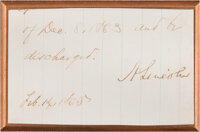 of Dec. 8, 1863 and be
discharged.
A. Lincoln
Feb. 14, 1865